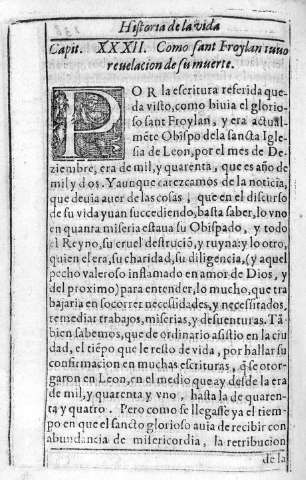 Historia de la vida
Capit. XXXII. Como sant Froylan tuuo
reuelacion de su muerte.
POR la escritura referida que
da visto, como biuia el glorio-
so sant Froylan, y era actual-
mēte Obispo dela sancta Igle
sia de Leon, por el mes de De
ziembre, era de mil, y quarenta, que es año de
mil, y dos. Y aunque carezcamos de la noticia,
que deuia auer de las cosas, que en el discurso
de su vida yuan succediendo, basta saber, lo vno
en quanta miseria estaua su Obispado, y todo
el Reyno, su cruel destruciō, y ruyna: y lo otro,
quien el era, su charidad, su diligencia, (y aquel
pecho valeroso inflamado en amor de Dios, y
del proximo) para entender, lo mucho, que tra
bajaria en socorrer necessidades, y necessitados,
remediar trabajos, miserias, y desuenturas. Tā
bien sabemos, que de ordinario asistio en la ciu
dad, el tiēpo que le resto de vida, por hallar su
confirmacion en muchas escrituras, q̄ se otor-
garon en Leon, en el medio que ay desde la era
de mil, y quarenta y vno, hasta la de quaren-
ta y quatro. Pero como se llegasse ya el tiem-
po en que el sancto glorioso auia de recibir con
abundancia de misericordia, la retribucion
de la